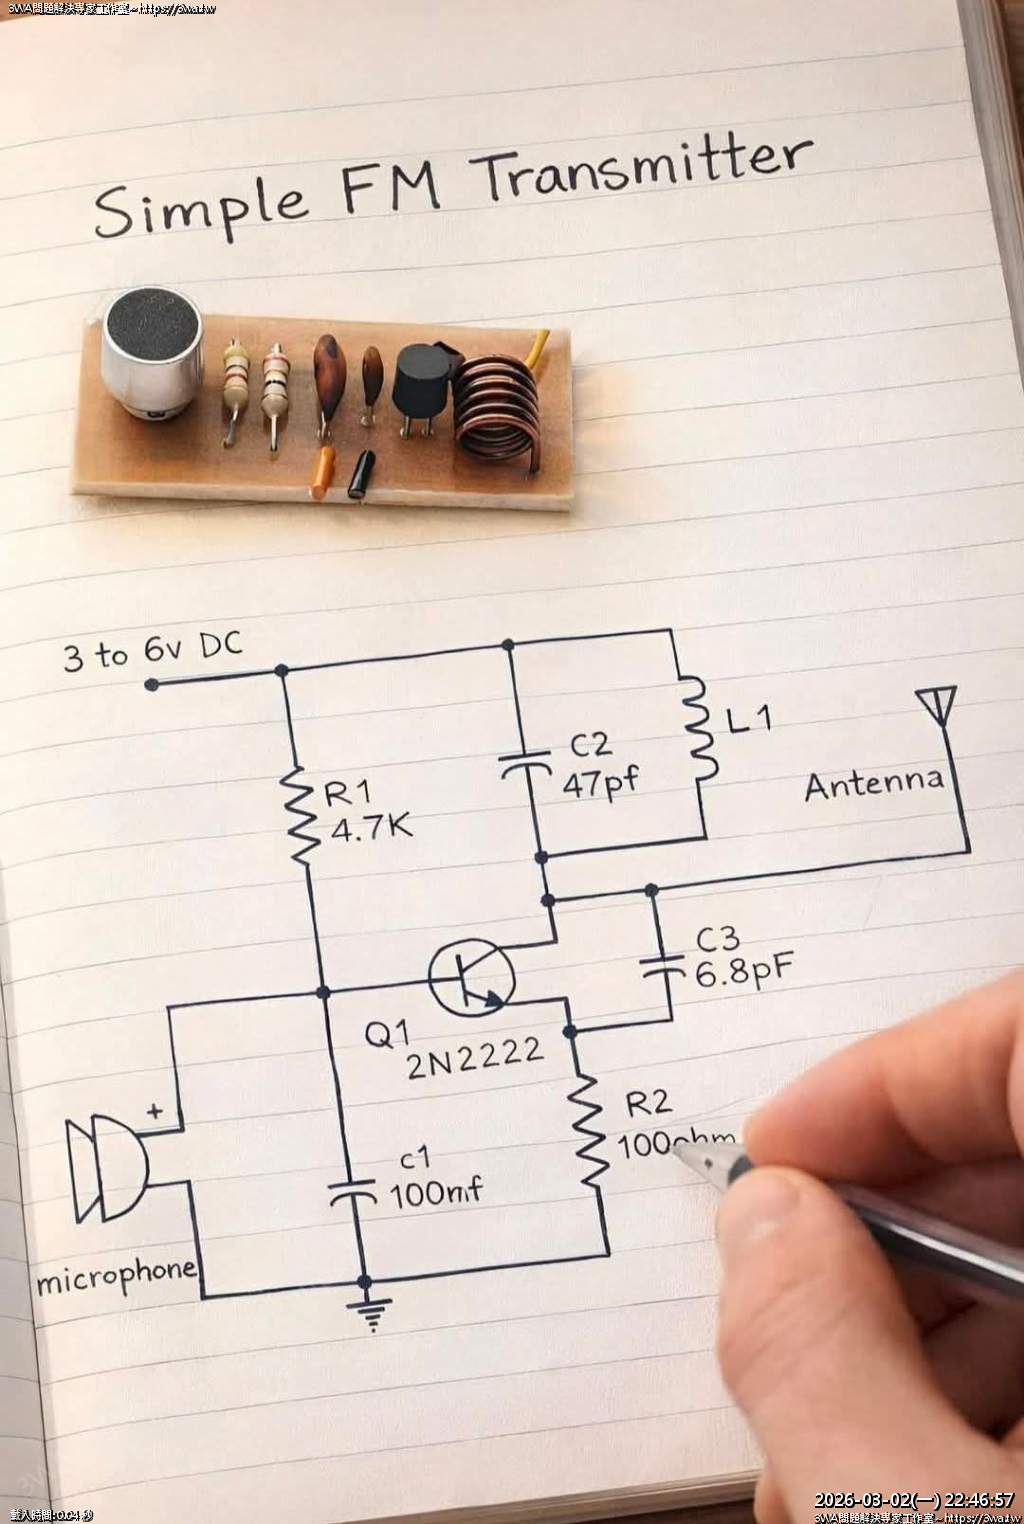 3WA問題解決專家工作室~https://3wa.tw
Simple FM Transmitter
3 to 6v DC
R1
4.7K
C2
47pf
L1
Antenna
C3
6.8pF
Q1
2N2222
+
R2
100ohm
c1
100mf
microphone
載入時間:0.04 秒
2026-03-02(一) 22:46:57
3WA問題解決專家工作室~https://3wa.tw